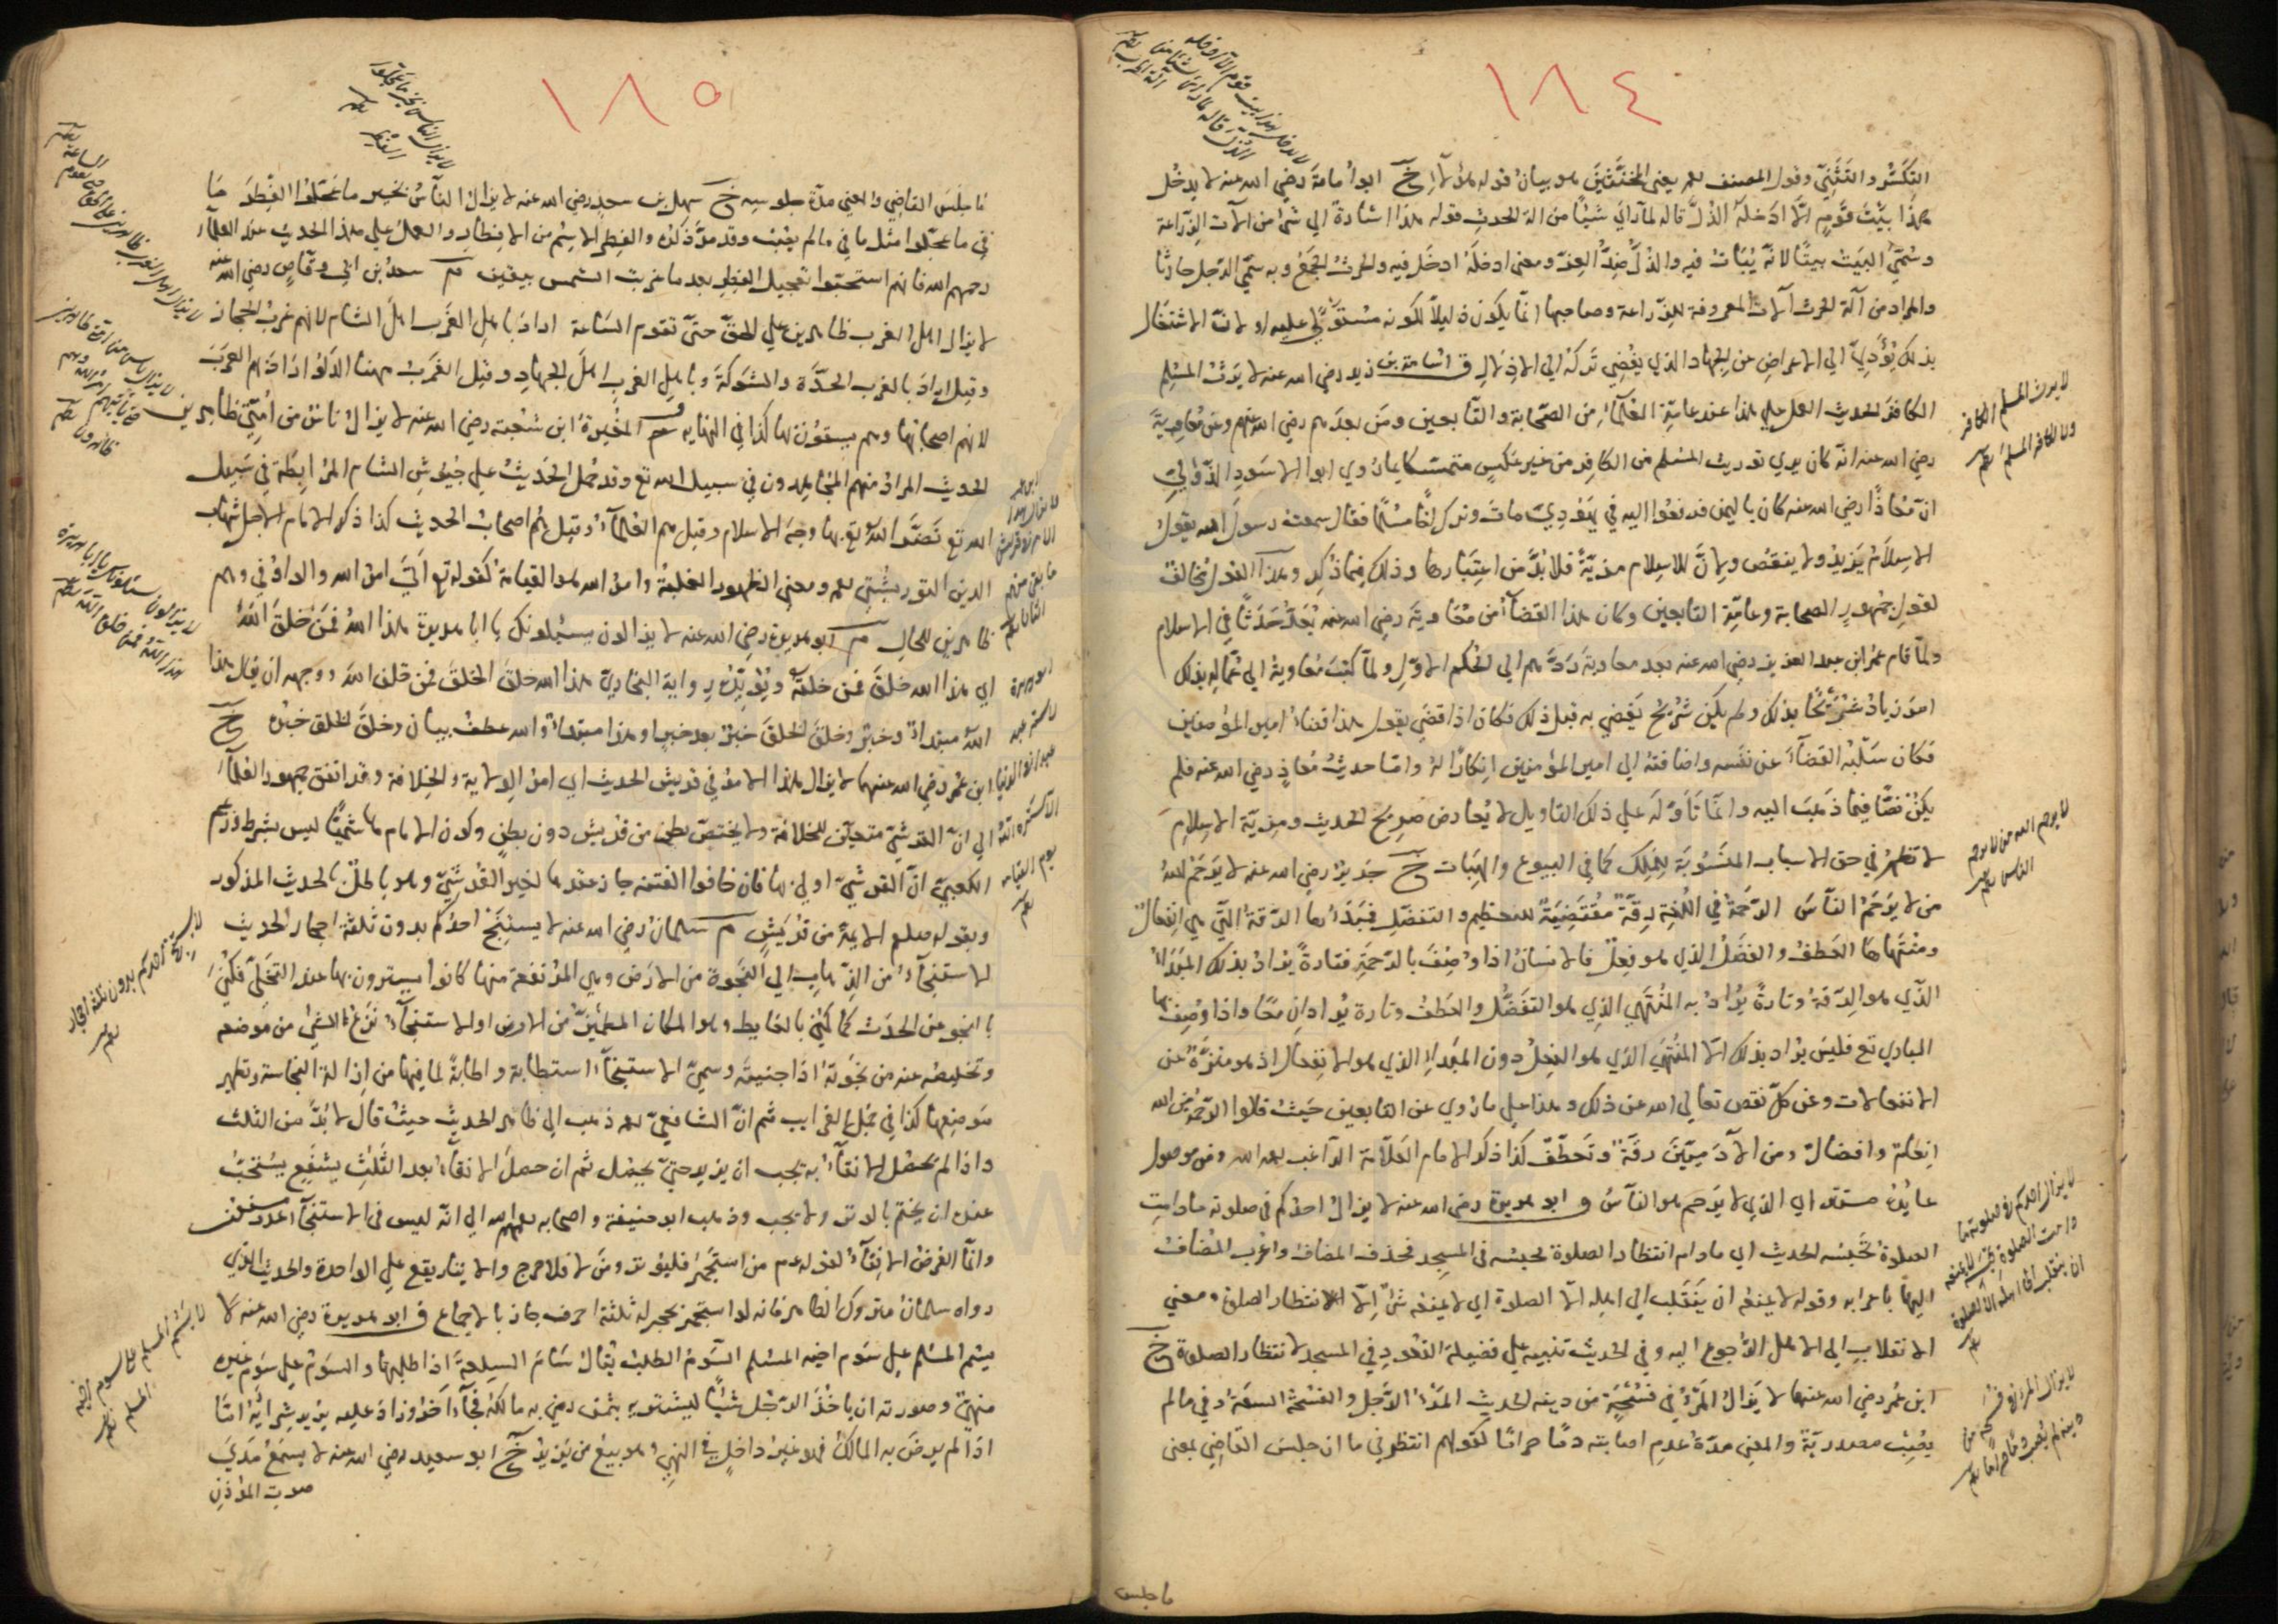 ١٨٤
التكسّر والتثنّي وقول المصنف يعني المخنّثين هو بيان قوله هؤلاء خ ابو أمامة رضي الله عنه لا يدخل
هذا بيت قوم الّا ادخله الذلّ قاله لما رأى شيئا من الة الحديث قوله هذا اشارة الي شئ من الآت الزراعة
وسمّي البيت بيتا لانه يُبات فيه والذلّ ضدّ العزّ ومعني ادخله ادخل فيه والحرث الجمع وبه سمّي الرجل حارثا
والمراد من آلة الحرث آلات المعروفة للزراعة وصاحبها انما يكون ذليلا لكونه مستولي عليه او لانّ الاشتغال
بذلك يؤدي الي الاعراض عن الجهاد الذي يفضي تركه الي الاذلال ق اسامة بن زيد رضي الله عنه لا يرث المسلم
الكافر الحديث العمل علي هذا عند عامة العلماء من الصحابة والتابعين ومن بعدهم رضي الله عنهم وعن معاوية
رضي الله عنه انه كان يري توريث المسلم من الكافر من غير عكس متمسكا بما روي ابو الاسود الدؤلي
ان معاذا رضي الله عنه كان باليمن فدفعوا اليه في يهودي مات وترك اخا مسلما فقال سمعت رسول الله يقول
الاسلام يزيد ولا ينقص ولانّ للاسلام مزيّة فلا بدّ من اعتبارها وذلك فيما ذكر وهذا القول مخالف
لقول جمهور الصحابة وعامة التابعين وكان هذا القضاء من معاوية رضي الله عنه يُعدّ حدثا في الاسلام
ولما قام عمر ابن عبد العزيز رضي الله عنه بعد معاوية ردّهم الي الحكم الاول ولما كتب معاوية الي عماله بذلك
امر زياد شريحا بذلك ولم يكن شريح يقضي به قبل ذلك فكان اذا قضي يقول هذا قضاء امير المؤمنين
فكان سلبه القضاء عن نفسه واضافته الي امير المؤمنين انكارا له وامّا حديث معاذ رضي الله عنه فلم
يكن نصّا فيما ذهب اليه وانّما تأوله علي ذلك التاويل لا يعارض صريح الحديث ومزيّة الاسلام
لا تظهر في حق الاسباب المنسوبة للملك كما في البيوع والهبات خ جرير رضي الله عنه لا يرحم الله
من لا يرحم الناس الرحمة في اللغة رقّة مقتضية للتعظيم والتفضّل فمبدأها الرقة التي هي انفعال
ومنتهاها العطف والفضل الذي هو فعل فالانسان اذا وُصف بالرحمة فتارة يراد بذلك المبدأ
الذي هو الرقة وتارة يُراد به المنتهي الذي هو التفضّل والعطف وتارة يُرادان معا واذا وُصف بها
الباري تع فليس يراد بذلك الّا المنتهي الذي هو الفعل دون المبدأ الذي هو الانفعال اذ هو منزّه عن
الانفعالات وعن كلّ نقص تعالي الله عن ذلك وهذا علي ما روي عن التابعين حيث قالوا الرحمة من الله
انعام وافضال ومن الآدميّين رقّة وتعطّف كذا ذكر الامام العلّامة الراغب ومن موصول
عايده مستتر اي الذي لا يرحم هو الناس و ابو هريرة رضي الله عنه لا يزال احدكم في صلوته ما دامت
الصلوة تحبسه الحديث اي ما دام انتظار الصلوة يحبسه في المسجد فحذف المضاف واعرب المضاف
اليه باعرابه وقوله لا يمنعه ان ينقلب الي اهله الّا الصلوة اي لا يمنعه شئ الّا انتظار الصلوة ومعني
الانقلاب الي الاهل الرجوع اليه وفي الحديث تنبيه علي فضيلة القعود في المسجد لانتظار الصلوة خ
ابن عمر رضي الله عنهما لا يزال المرء في فسحة من دينه الحديث المرء الرجل والفسحة السعة وفي ما لم
يصب مصدرية والمعني مدة عدم اصابته دما حراما كقولهم انتظرني ما ان جلس القاضي بمعني
ما جلس
لا يرث المسلم الكافر
ولا الكافر المسلم
لا يرحم الله من لا يرحم
الناس
لا يزال احدكم في صلوته ما
دامت الصلوة تحبسه لا يمنعه
ان ينقلب الي اهله الا الصلوة
لا يزال المرء في فسحة من
دينه ما لم يصب دما حراما
١٨٥
ما جلس القاضي والمعني مدة جلوسه خ سهل بن سعد رضي الله عنه لا يزال الناس بخير ما عجّلوا الفطر ما
في ما عجّلوا مثل ما في ما لم يصب وقد مرّ ذكره والفطر الاسم من الافطار والعمل علي هذا الحديث عند العلماء
رحمهم الله فانهم استحبّوا تعجيل الفطر بعد ما غربت الشمس بيقين م سعد بن ابي وقاص رضي الله عنه
لا يزال اهل الغرب ظاهرين علي الحق حتي تقوم الساعة اراد باهل الغرب اهل الشام لانهم غرب الحجاز
وقيل اراد بالغرب الحدّة والشوكة وباهل الغرب اهل الجهاد وقيل الغرب ههنا الدلو اراد بهم العرب
لانهم اصحابها وهم يستقون بها كذا في النهاية ق المغيرة ابن شعبة رضي الله عنه لا يزال ناس من امتي ظاهرين
الحديث المراد منهم المجاهدون في سبيل الله تع وقد حمل الحديث علي جيوش الشام المرابطة في سبيل
الله تع نصر الله تع بها وجه الاسلام وقيل هم العلماء وقيل هم اصحاب الحديث كذا ذكر الامام الاجل شهاب
الدين التوربشتي ومعني الظهور الغلبة وامر الله هو القيامة كقوله تع اتي امر الله والواو في وهم
ظاهرين للحال م ابو هريرة رضي الله عنه لا يزالون يسئلونك يا ابا هريرة هذا الله فمن خلق الله
اي هذا الله خلق فمن خلقه ويؤيّده رواية البخاري هذا الله خلق الخلق فمن خلق الله ووجهه ان يقال هذا
الله مبتدأ وخبر وخلق الخلق خبر بعد خبر او هذا مبتدأ والله عطف بيان وخلق الخلق خبره خ
ابن عمر رضي الله عنهما لا يزال هذا الامر في قريش الحديث اي امر الولاية والخلافة وقد اتفق جمهور العلماء
الي انّ القرشيّ متعيّن للخلافة ولا يختصّ بطن من قريش دون بطن وكون الامام هاشميّا ليس بشرط وزعم
الكعبيّ انّ القرشيّ اولي بها فان خافوا الفتنة جاز عقدها لغير القرشيّ وهو باطل بالحديث المذكور
وبقوله صلعم الائمة من قريش م سلمان رضي الله عنه لا يستنج احدكم بدون ثلثة احجار الحديث
الاستنجاء من الذهاب الي النجوة من الارض وهي المرتفعة منها كانوا يستترون بها عند التخلّي فكني
بالنجو عن الحدث كما كني بالغايط وهو المكان المطمئن من الارض او الاستنجاء نزع الشئ من موضعه
وتخليصه عنه من نجوته اذا جنيته وسمي الاستنجاء استطابة واطابة لما فيها من ازالة النجاسة وتطهير
موضعها كذا في مجمل الغرايب ثم انّ الشافعيّ ذهب الي ظاهر الحديث حيث قال لا بدّ من الثلث
واذا لم يحصل الانقاء به يجب ان يزيد حتي يحصل ثم ان حصل الانقاء بعد الثلث بشفع يستحب
عنده ان يختم بالوتر ولا يجب وذهب ابو حنيفة واصحابه رحمهم الله الي انّه ليس في الاستنجاء عدد مسنون
وانّما الغرض الانقاء لقوله عم من استجمر فليوتر ومن لا فلا حرج والايتار يقع علي الواحدة والحديث الذي
رواه سلمان متروك الظاهر فانه لو استجمر بحجر له ثلثة احرف جاز بالاجماع ق ابو هريرة رضي الله عنه لا
يسم المسلم علي سوم اخيه المسلم السوم الطلب يقال سام السلعة اذا طلبها والسوم علي سوم غيره
منهيّ وصورته ان ياخذ الرجل شيئا ليشتريه بثمن رضي به مالكه فجاء آخر وزاد عليه يريد شراءه امّا
اذا لم يرض به المالك فهو غير داخل في النهي وهو بيع من يزيد خ ابو سعيد رضي الله عنه لا يسمع مدي
صوت المؤذن
لا يزال الناس بخير ما عجلوا
الفطر
لا يستنج احدكم بدون ثلثة احجار
لا يسم المسلم علي سوم اخيه
المسلم